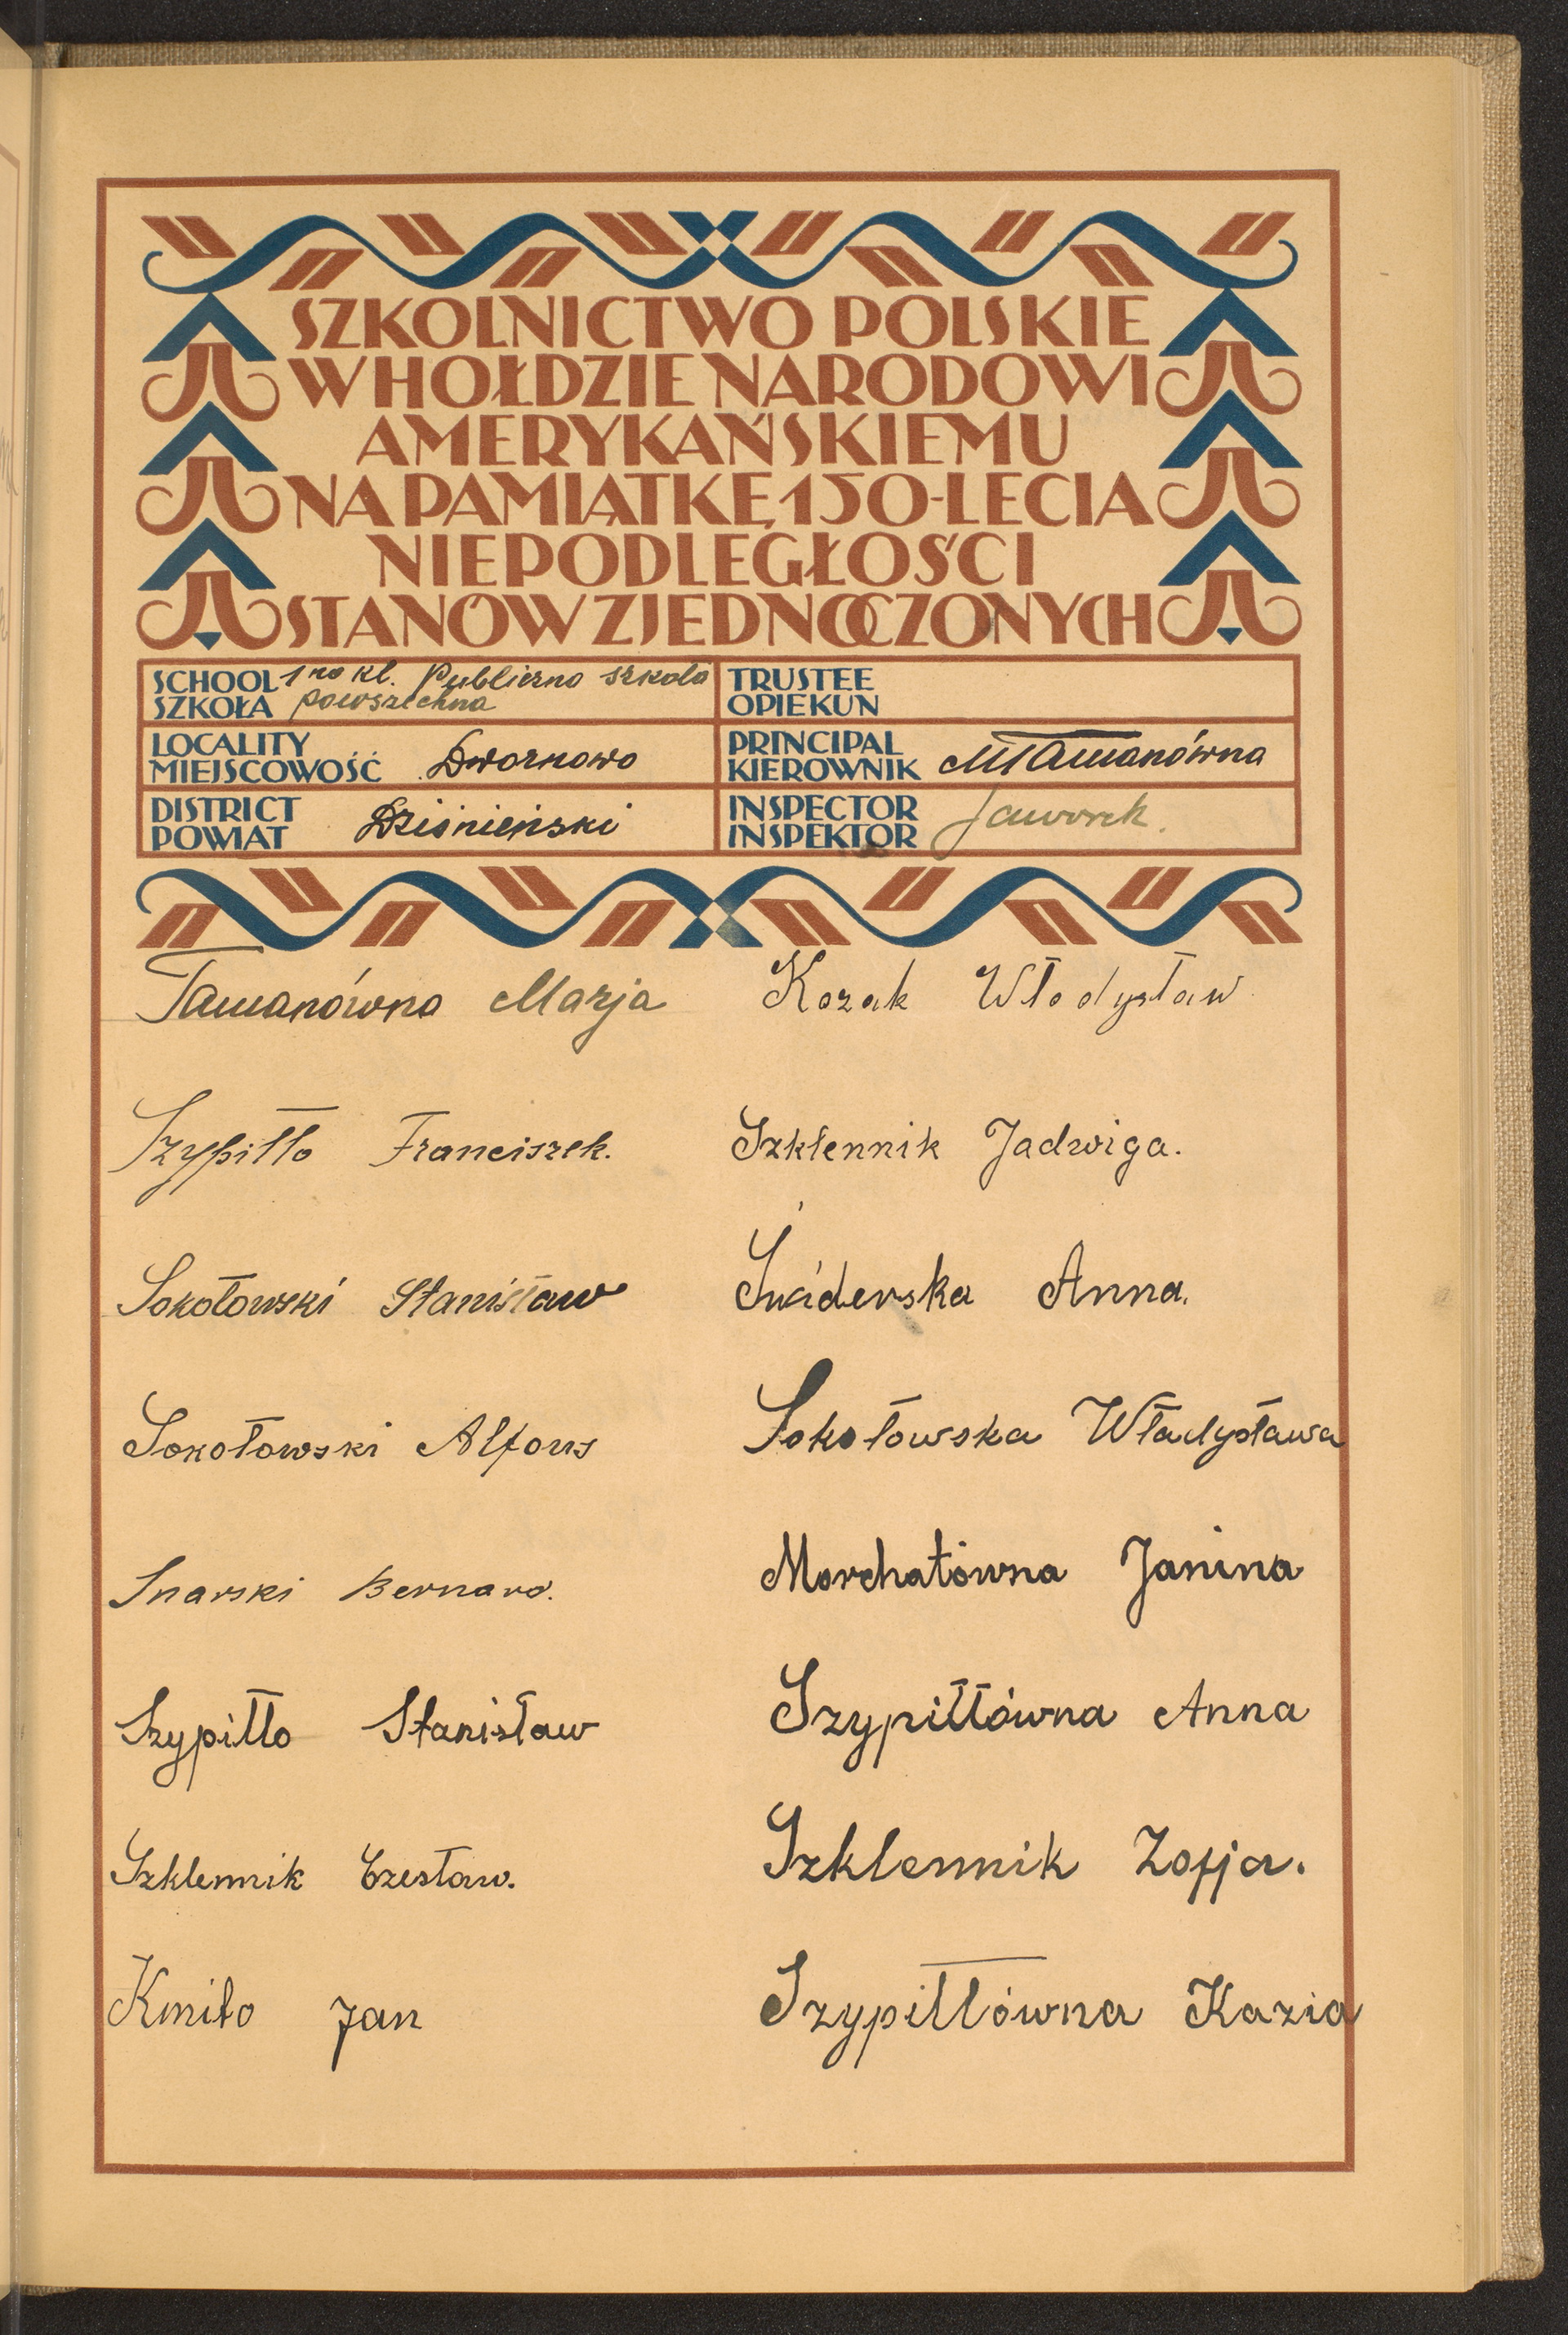 SZKOLNICTWO POLSKIE
W HOŁDZIE NARODOWI
AMERYKAŃSKIEMU
NA PAMIĄTKĘ 150-LECIA
NIEPODLEGŁOŚCI
STANÓW ZJEDNOCZONYCH
SCHOOL 1no kl. Publiczna szkoła
SZKOŁA powszechna
TRUSTEE
OPIEKUN
LOCALITY
MIEJSCOWOŚĆ Dwornowo
PRINCIPAL
KIEROWNIK MTamanówna
DISTRICT
POWIAT Dziśnieński
INSPECTOR
INSPEKTOR Jaworek.
Tamanówna Marja
Kozak Włodysław
Szypiłło Franciszek.
Szklennik Jadwiga.
Sokołowski Stanisław
Anna.
Sokołowski Alfons
Sokołowska Władysława
Snarski Bernard.
Morchatówna Janina
Szypiłło Stanisław
Szypiłłówna Anna
Szklennik Czesław.
Szklennik Zofja.
Kmito Jan
Szypiłłówna Kazia